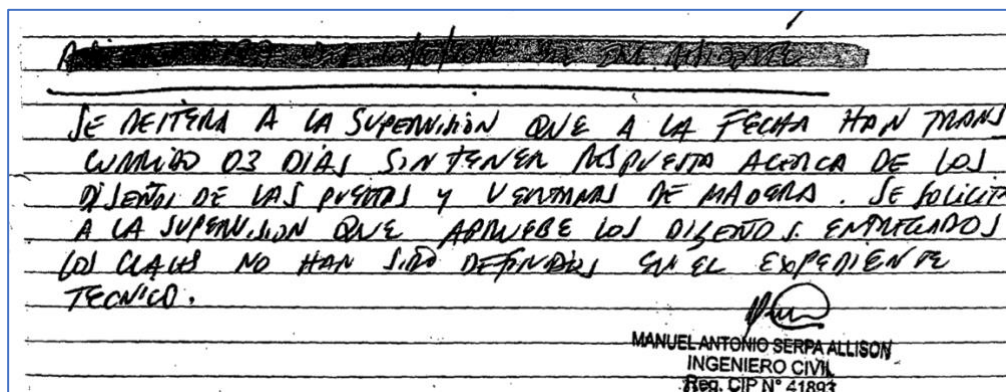 SE REITERA A LA SUPERVISIÓN QUE A LA FECHA HAN TRANS
CURRIDO 03 DIAS SIN TENER RESPUESTA ACERCA DE LOS
DISEÑOS DE LAS PUERTAS Y VENTANAS DE MADERA. SE SOLICITA
A LA SUPERVISION QUE APRUEBE LOS DISEÑOS ENTREGADOS
LOS CUALES NO HAN SIDO DEFINIDOS EN EL EXPEDIENTE
TECNICO.
MANUEL ANTONIO SERPA ALLISON
INGENIERO CIVIL
Reg. CIP N° 41893